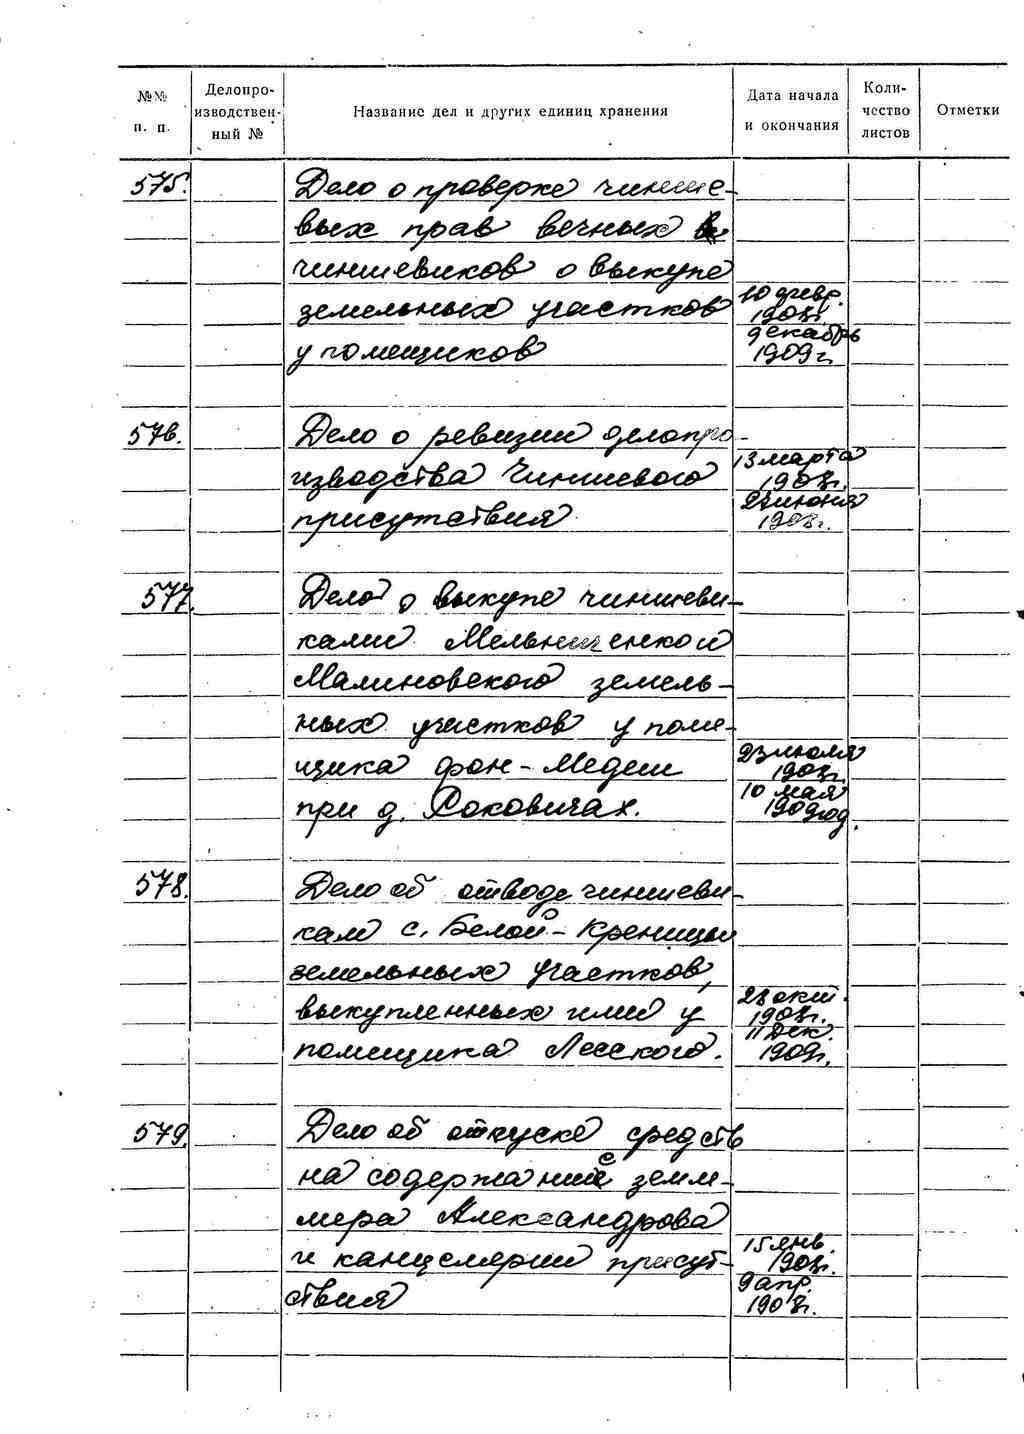 №№ п. п.
Делопро-изводствен-ный №
Название дел и других единиц хранения
Дата начала и окончания
Коли-чество листов
Отметки
575.
Дело о проверке чинше-
вых прав вечных
чиншевиков о выкупе
земельных участков
у помещиков
10 февр.
1908г.
декабрь
1909 г.
576.
Дело о ревизии делопро-
изводства Чиншевого
присутствия
13 марта
1908г.
23 июня
1908г.
577.
Дело о выкупе чиншеви-
ками Мельниченко и
Малиновского земель-
ных участков у поме-
щика фон-Медем
при д. Соковичах.
23 июля
1908г.
10 мая
1909год.
578.
Дело об отводе чиншеви-
кам с. Белой-Креницы
земельных участков,
выкупленных ими у
помещика Лесского.
28 окт.
1908г.
11 Дек.
1909г.
579.
Дело об отпуске средств
на содержание земле-
мера Александрова
и канцелярии присут-
ствия
15 янв.
1908г.
9 апр.
1908г.